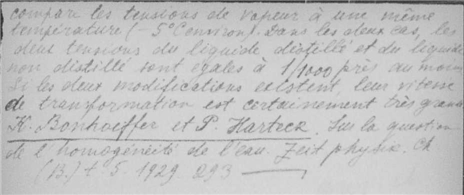 comparé les tensions de vapeur à une même
température (-5° environ). Dans les deux cas, les
deux tensions du liquide distillé et du liquide
non distillé sont égales à 1/1000 près au moins
Si les deux modifications existent, leur vitesse
de transformation est certainement très grande
K. Bonhoeffer et P. Harteck. Sur la question
de l'homogénéité de l'eau. Zeit physik. Ch
(B.) t 5. 1929 293 —